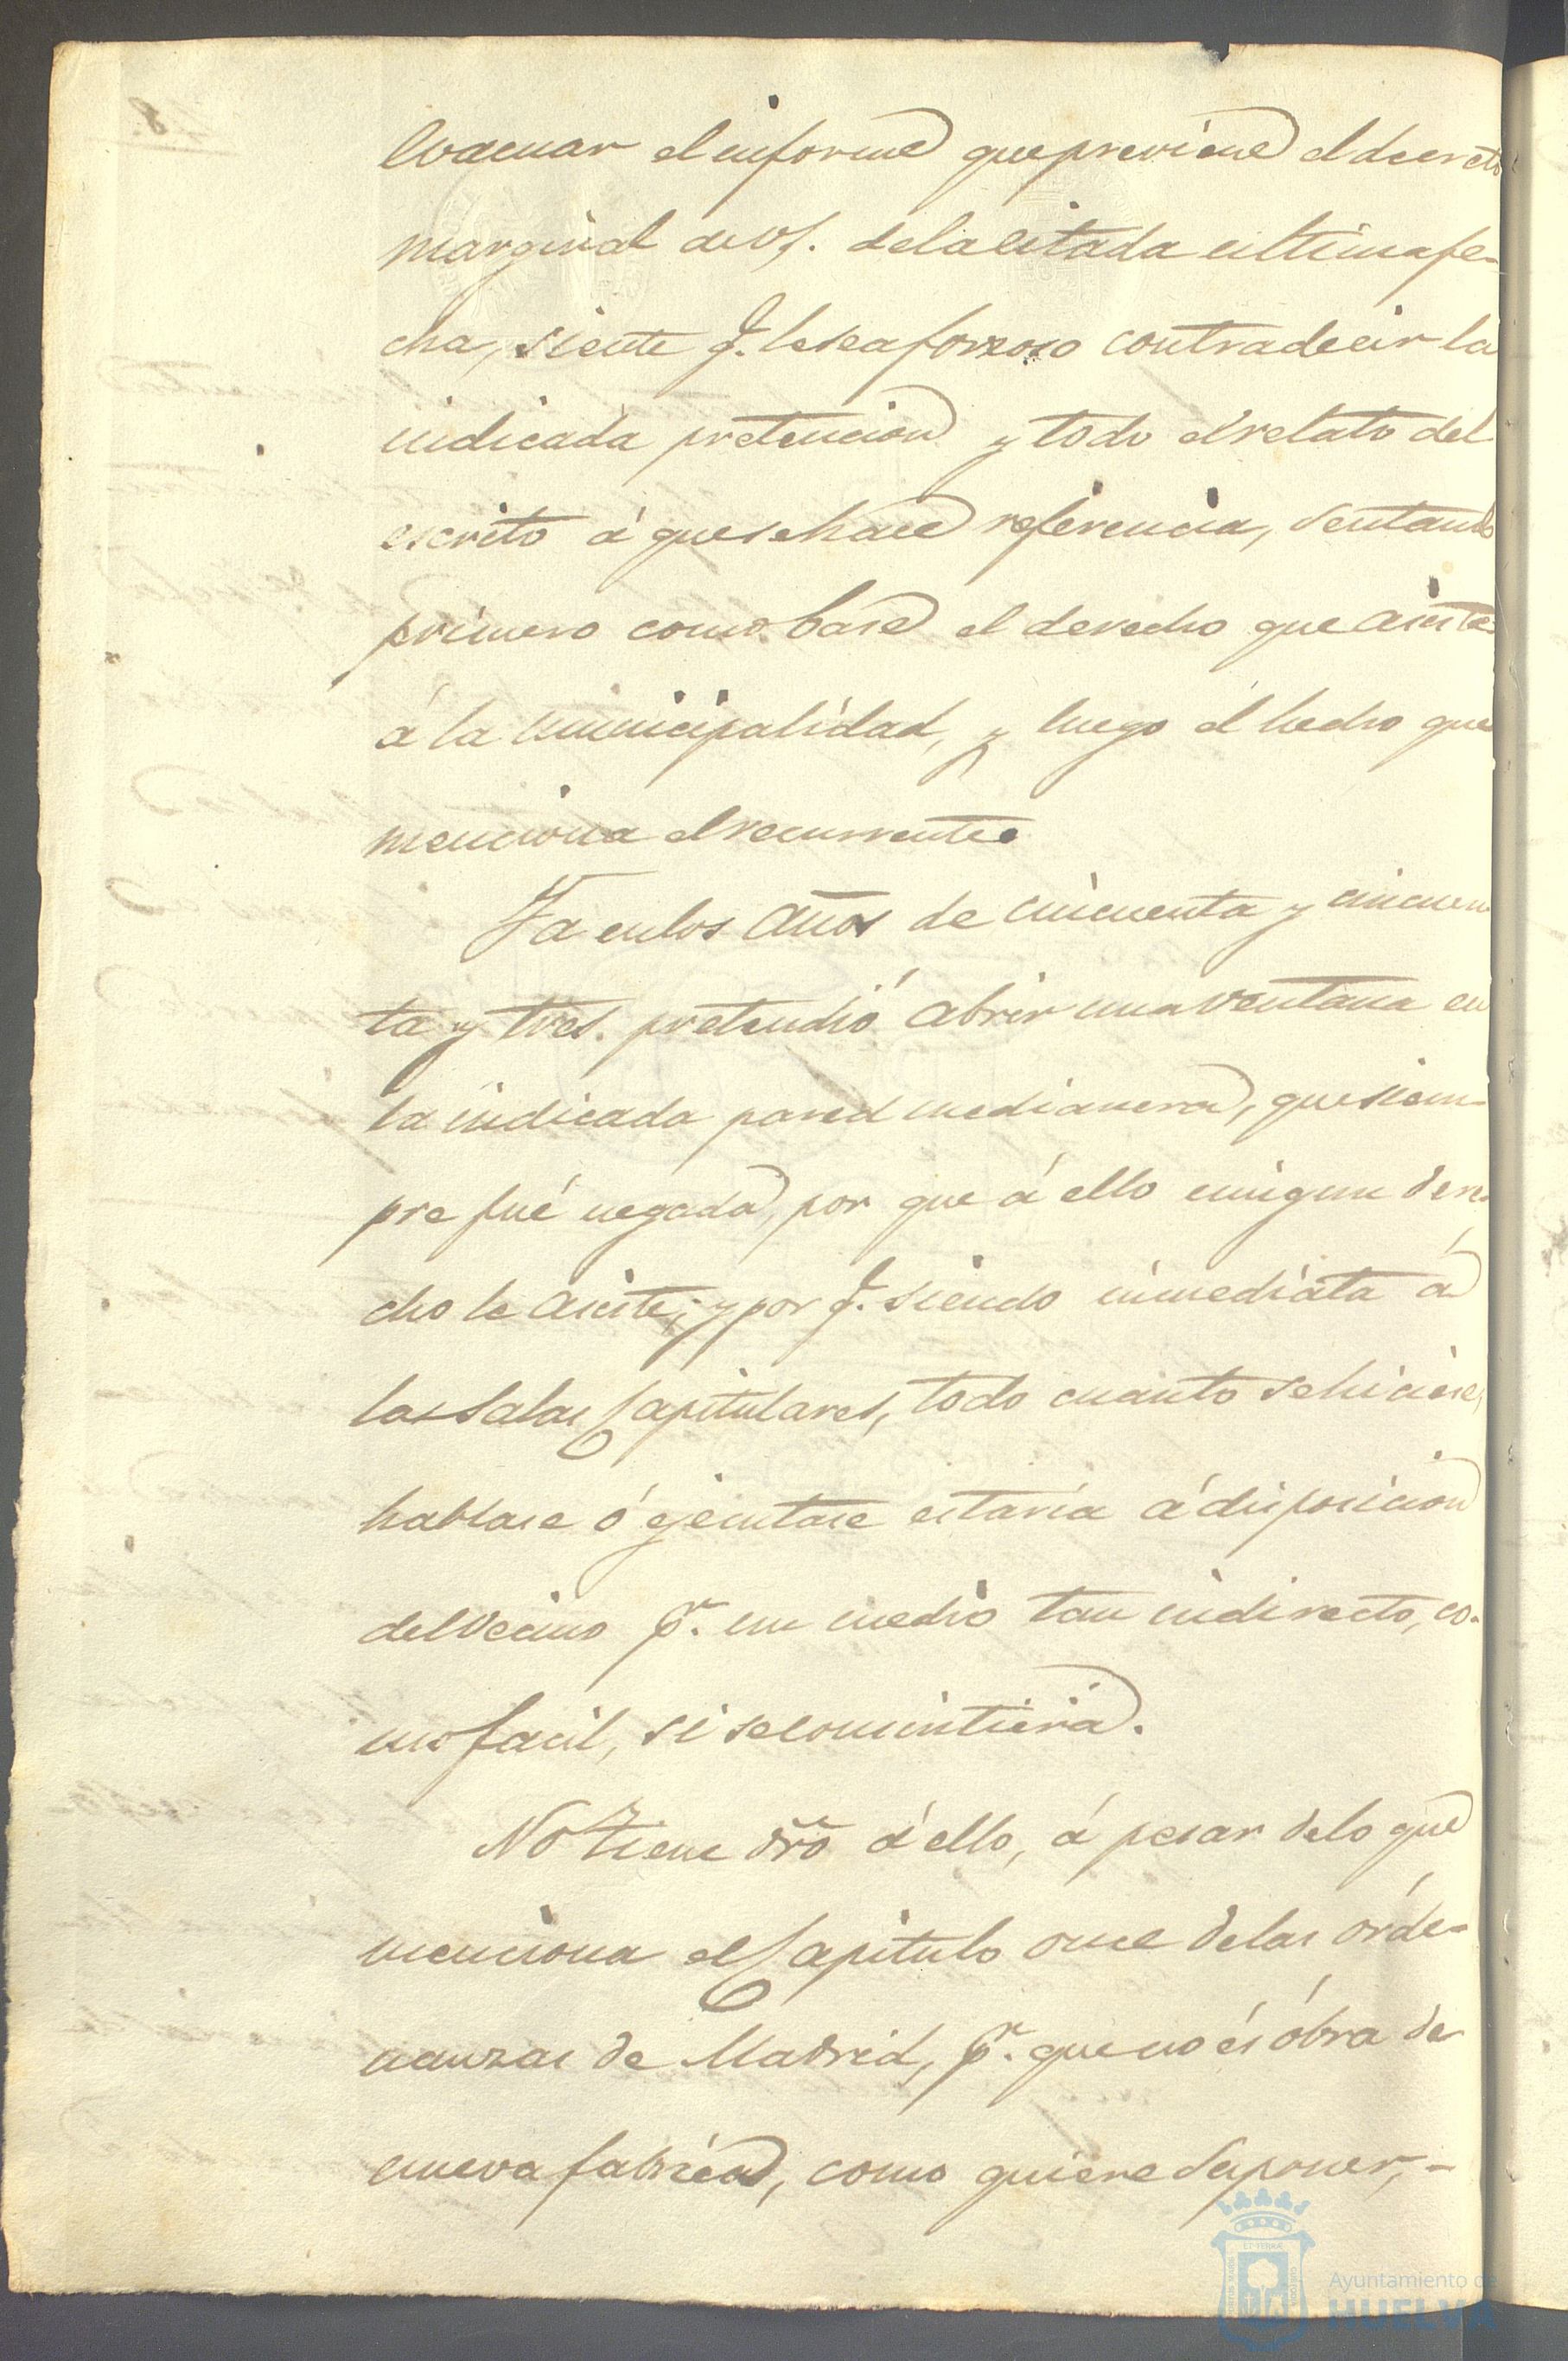 evacuar el informe que previene el decreto
marginal de VS. de la citada ultima fe-
cha, siente q. le sea forzoso contradecir la
indicada pretencion y todo el relato del
escrito á que se hace referencia, sentando
primero como base el derecho que asiste
á la municipalidad, y luego el hecho que
menciona el recurrente
Ya en los años de cincuenta y cincuen
ta y tres. pretendió abrir una ventana en
la indicada pared medianera, que siem-
pre fué negada, por que á ello ningun dere-
cho le asiste; y por q. siendo inmediata á
las Salas Capitulares, todo cuanto se hiciese,
hablase ó ejecutase estaria á disposicion
del vecino pr. un medio tan indirecto, co-
mo facil, si se comintiera.
No tiene dro á ello, á pesar de lo que
menciona el Capitulo once de las órde-
nanzas de Madrid, pr. que no és óbra de
nueva fabrica, como quiere suponer,-
Ayuntamiento de
HUELVA